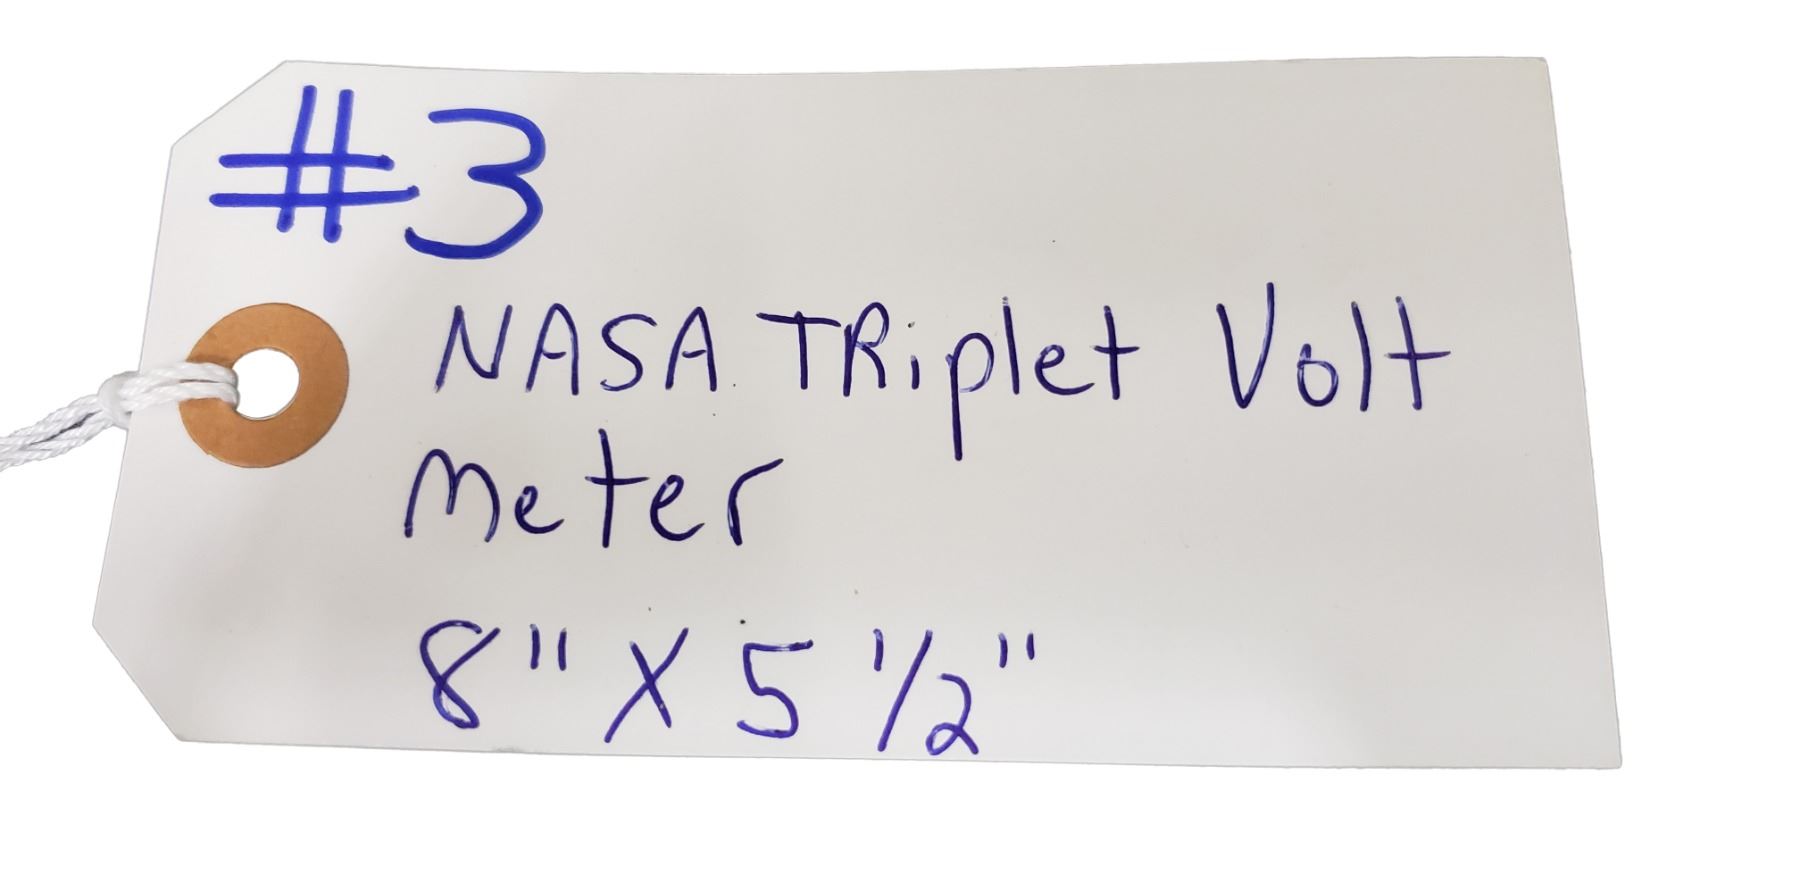 #3
NASA TRiplet Volt
Meter
8" X 5 1/2"